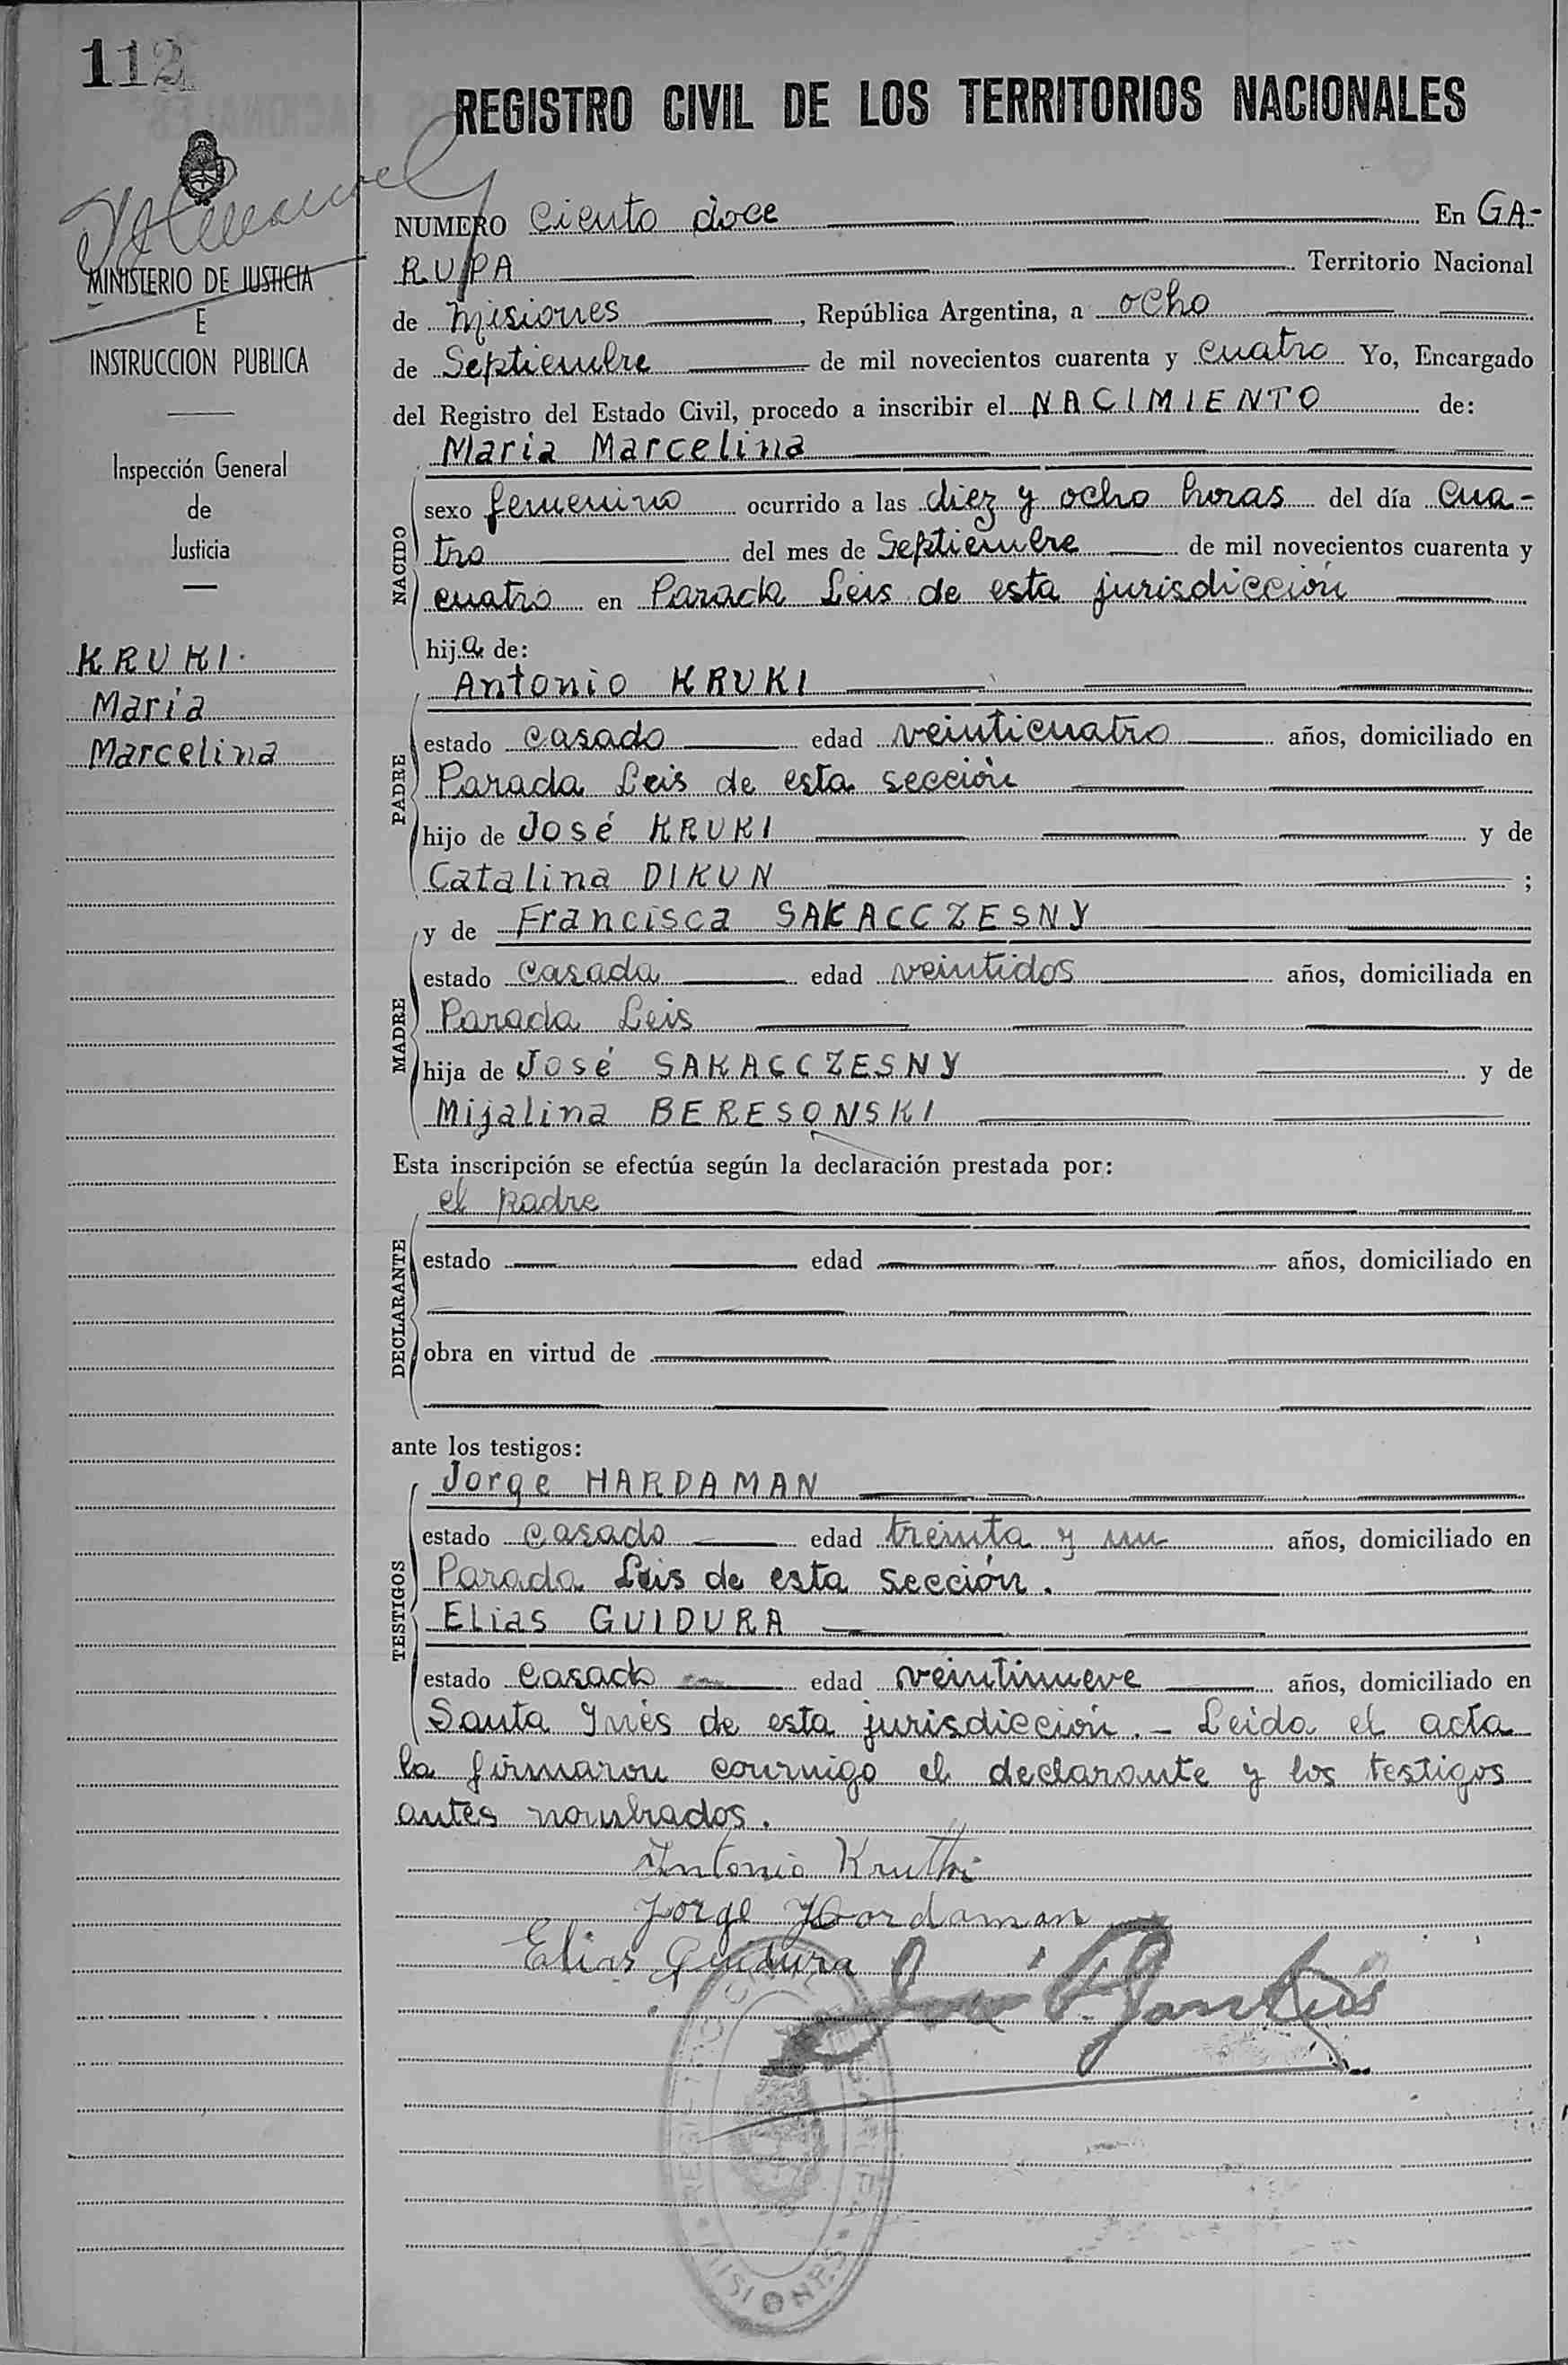 112
REGISTRO CIVIL DE LOS TERRITORIOS NACIONALES
MINISTERIO DE JUSTICIA
E
INSTRUCCION PUBLICA
Inspección General
de
Justicia
KRUKI.
María
Marcelina
NUMERO Ciento doce En GA-
RUPA Territorio Nacional
de Misiones, República Argentina, a ocho
de Septiembre de mil novecientos cuarenta y cuatro Yo, Encargado
del Registro del Estado Civil, procedo a inscribir el NACIMIENTO de:
María Marcelina
NACIDO
sexo femenino ocurrido a las diez y ocho horas del día cua-
tro del mes de Septiembre de mil novecientos cuarenta y
cuatro en Parada Leis de esta jurisdicción
hija de:
Antonio KRUKI
PADRE
estado casado edad veinticuatro años, domiciliado en
Parada Leis de esta sección
hijo de José KRUKI y de
Catalina DIKUN ;
y de Francisca SAKACCZESNY
MADRE
estado casada edad veintidos años, domiciliada en
Parada Leis
hija de José SAKACCZESNY y de
Mijalina BERESONSKI
Esta inscripción se efectúa según la declaración prestada por:
el padre
DECLARANTE
estado edad años, domiciliado en
obra en virtud de
ante los testigos:
Jorge HARDAMAN
TESTIGOS
estado casado edad treinta y un años, domiciliado en
Parada Leis de esta sección.
Elias GUIDURA
estado casado edad veintinueve años, domiciliado en
Santa Inés de esta jurisdicción.- Leida el acta
la firmaron conmigo el declarante y los testigos
antes nombrados.
Antonio Krutki
Jorge Hardaman
Elias Guidura
REGISTRO CIVIL
MISIONES